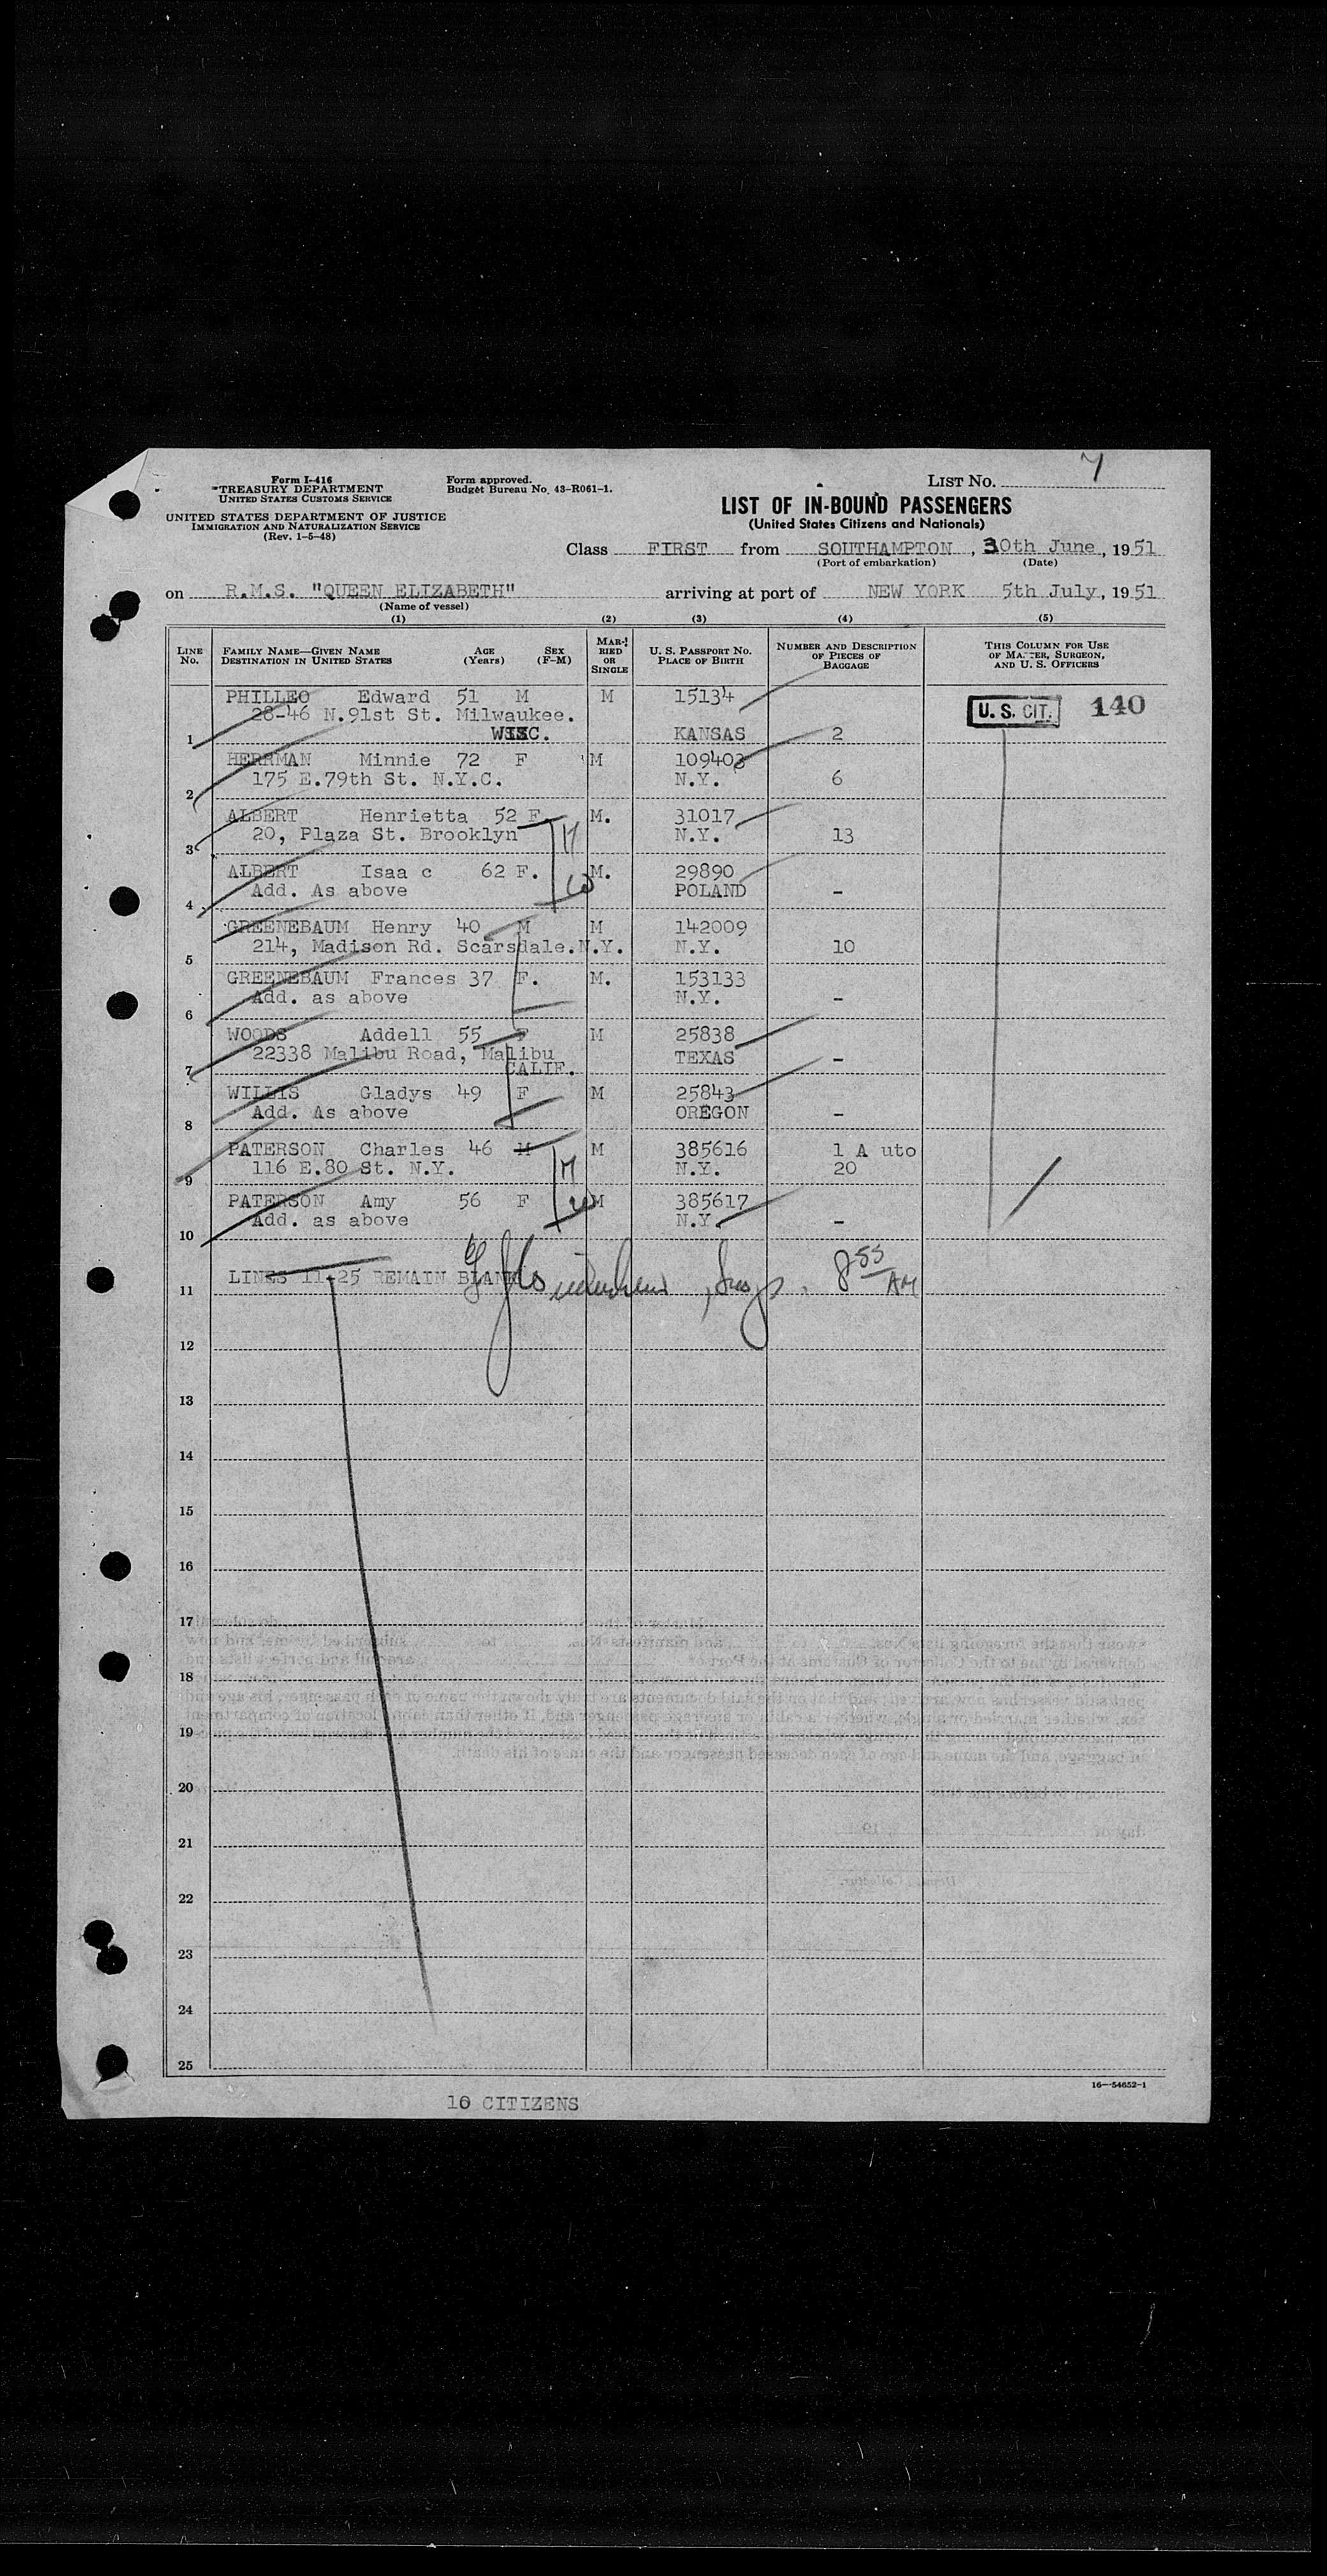 7
Form I-416
TREASURY DEPARTMENT
UNITED STATES CUSTOMS SERVICE
Form approved.
Budget Bureau No. 43-R061-1.
LIST No.
UNITED STATES DEPARTMENT OF JUSTICE
IMMIGRATION AND NATURALIZATION SERVICE
(Rev. 1-5-48)
LIST OF IN-BOUND PASSENGERS
(United States Citizens and Nationals)
Class FIRST from SOUTHAMPTON, 30th June, 1951
(Port of embarkation) (Date)
on R.M.S. "QUEEN ELIZABETH" arriving at port of NEW YORK 5th July, 1951
(Name of vessel)
(1) (2) (3) (4) (5)
LINE No. FAMILY NAME—GIVEN NAME DESTINATION IN UNITED STATES AGE (Years) SEX (F-M) MARRIED OR SINGLE U. S. PASSPORT NO. PLACE OF BIRTH NUMBER AND DESCRIPTION OF PIECES OF BAGGAGE THIS COLUMN FOR USE OF MASTER, SURGEON, AND U. S. OFFICERS
PHILLEO Edward 51 M M 15134 U. S. CIT. 140
28-46 N.91st St. Milwaukee.
1 WISC. KANSAS 2
HERRMAN Minnie 72 F M 109403
2 175 E.79th St. N.Y.C. N.Y. 6
ALBERT Henrietta 52 F M. 31017
3 20, Plaza St. Brooklyn N.Y. 13
H
ALBERT Isaa c 62 F. M. 29890
4 Add. As above POLAND -
W
GREENEBAUM Henry 40 M M 142009
5 214, Madison Rd. Scarsdale. N.Y. N.Y. 10
GREENEBAUM Frances 37 F. M. 153133
6 Add. as above N.Y. -
WOODS Addell 55 F M 25838
7 22338 Malibu Road, Malibu TEXAS -
CALIF.
WILLIS Gladys 49 F M 25843
8 Add. As above OREGON -
PATERSON Charles 46 M M 385616 1 A uto
9 116 E.80 St. N.Y. N.Y. 20
H
PATERSON Amy 56 F M 385617
10 Add. as above N.Y. -
W
11 LINES 11-25 REMAIN BLANK 8 55 AM
12
13
14
15
16
17
18
19
20
21
22
23
24
25
16—54652-1
10 CITIZENS